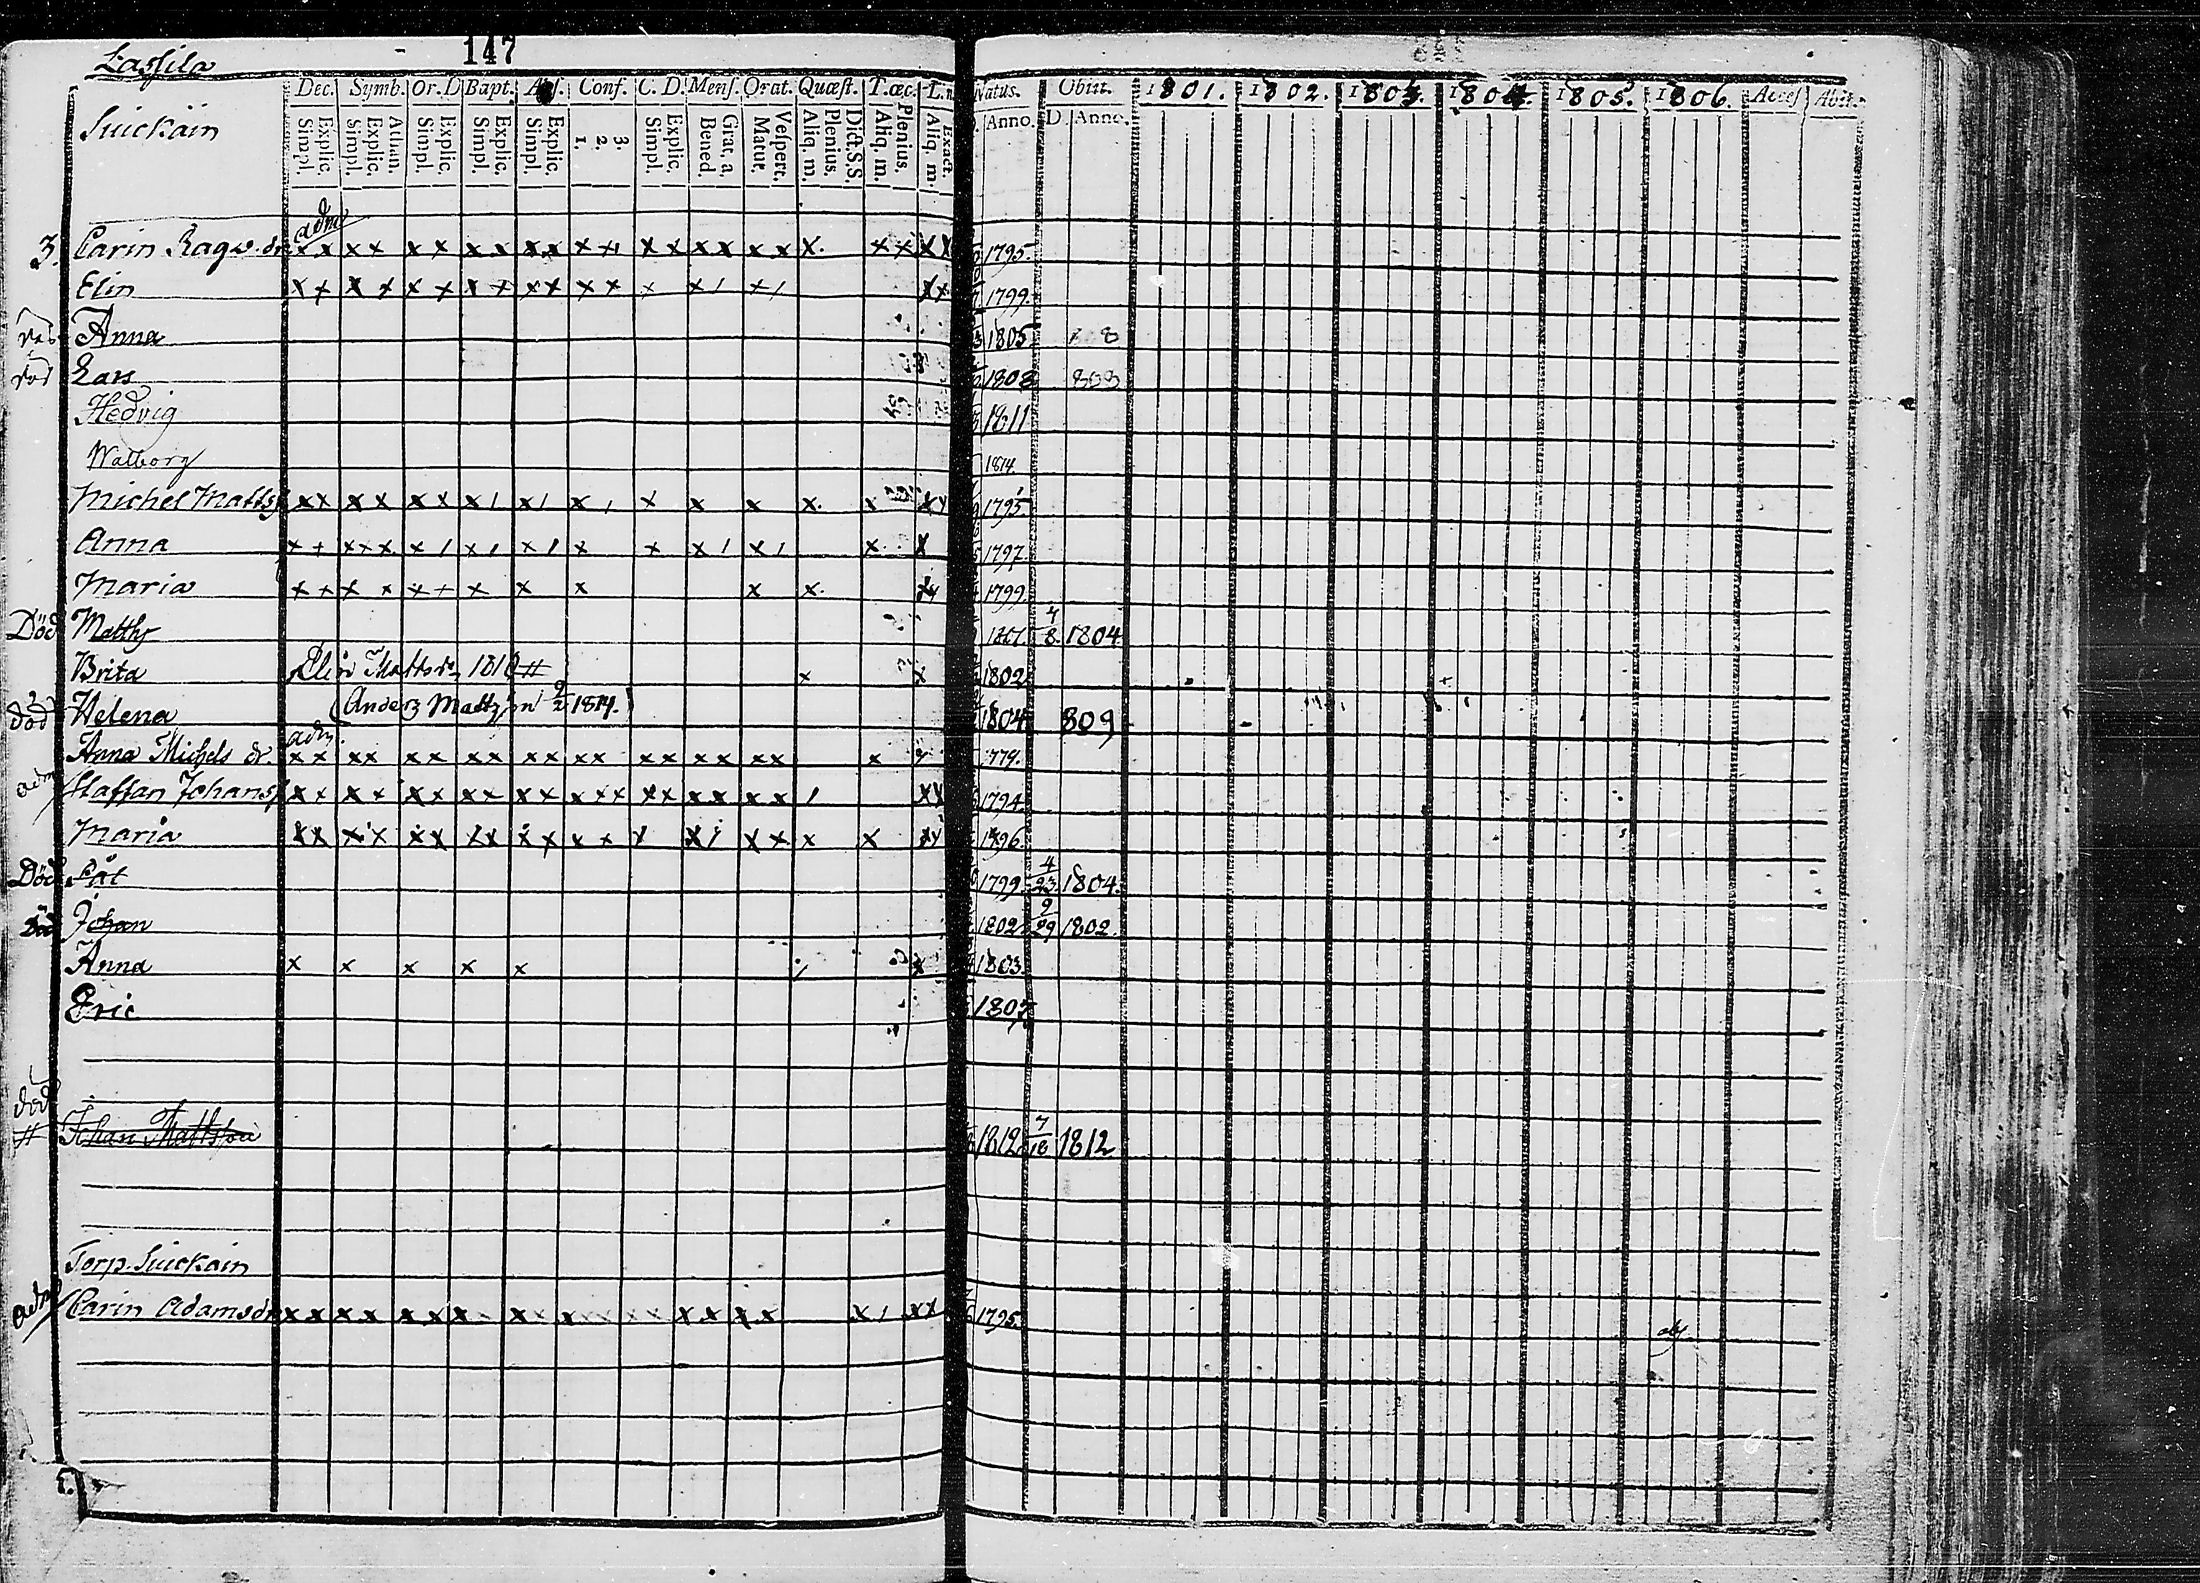 147
Lassila
Suickain
Dec. Symb. Or. D Bapt. Abs. Conf. C. D. Mens. Orat. Quæst. T. œc. L. n
Simpl. Explic. Simpl. Explic. Athan. Simpl. Explic. Simpl. Explic. Simpl. Explic. 1. 2. 3. Simpl. Explic. Bened Grat. a. Matut. Vespert. Aliq. m. Plenius. Dict. S. S. Aliq. m. Plenius. Aliq. m. Exact.
Natus. Obiit. 1801. 1802. 1803. 1804. 1805. 1806. Acces Abit.
Anno. D. Anno.
adm
3. Carin Ragw. dr. x x x x x x x x x x x x x x x x x x x. x x x x 1795.
Elin x x x x x x x x x x x x x x / x / x x 1799.
Anna 1805 8
Lars 1808 808
Hedvig 1811
Walborg 1814.
Michel Matts x x x x x x x / x / x / x x x x. x x x 1795
Anna x x x x x x / x / x / x x x / x / x. x 1797.
Maria x x x x x x x x x x x. x x 1799
Död Matts 4/8. 1804
Brita Elin Mattsdr 1810 # x x 1802
död Helena (Anders Mattson 2/2 1814.) 1804 809
adm.
Anna Michels dr. x x x x x x x x x x x x x x x x x x x 779.
adm Staffan Johans x x x x x x x x x x x x x x x x x x x / x x 1794
Maria x x x x x x x x x x x x x x / x x x x x x 1796.
Död Påt 1799. 4/23 1804.
Död Johan 1802. 9/29 1802.
Anna x x x x x / x 1803.
Eric 1807
död
# Johan Mattsson 1812 7/18 1812
Torp. Suickain
adm Carin Adamsdr x x x x x x x x x x x x x x x x x / x x 1795.